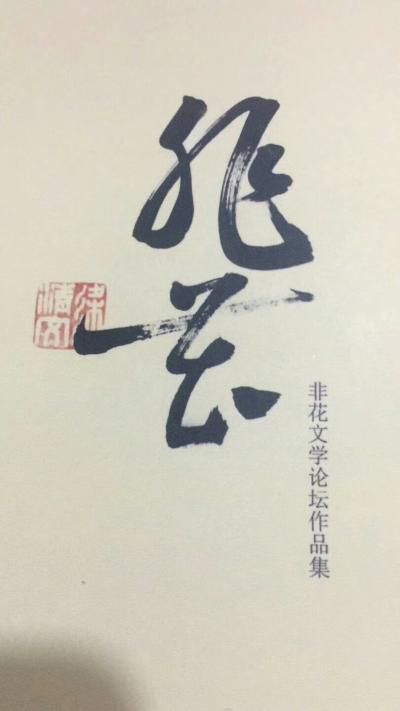 非花
非花文学论坛作品集